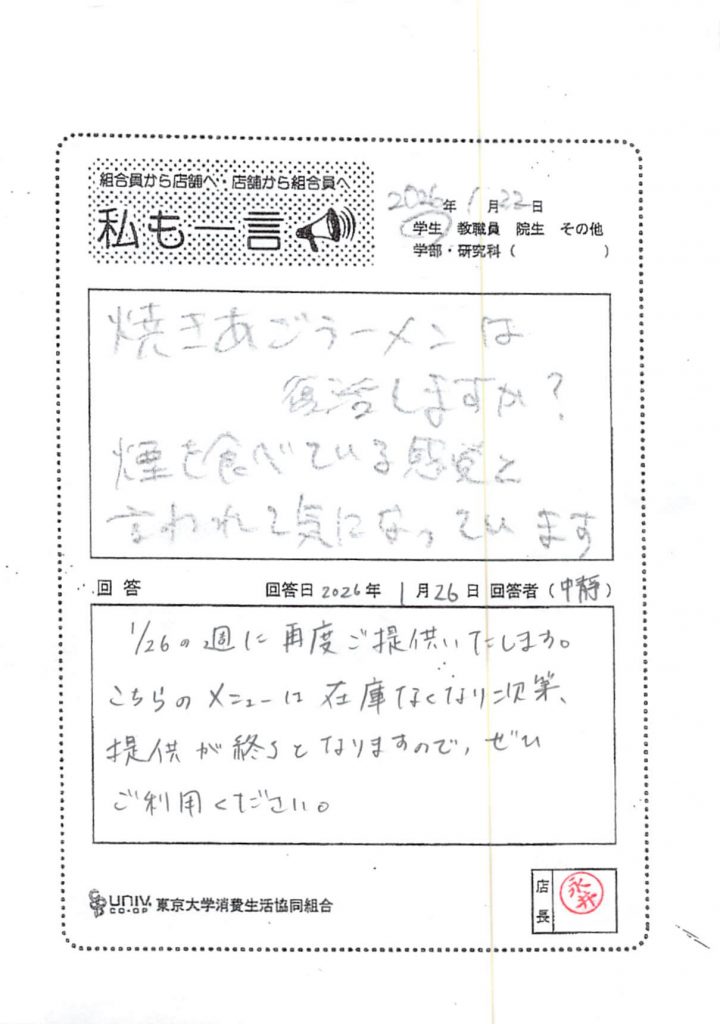 組合員から店舗へ・店舗から組合員へ
私も一言
2026年 1月22日
学生 教職員 院生 その他
学部・研究科( )
焼きあごラーメンは
復活しますか?
煙を食べている感覚と
言われて気になっています
回答 回答日 2026年 1月26日 回答者(中静)
1/26の週に再度ご提供いたします。
こちらのメニューは在庫なくなり次第、
提供が終了となりますので、ぜひ
ご利用ください。
UNIV. CO-OP 東京大学消費生活協同組合
店長
永井